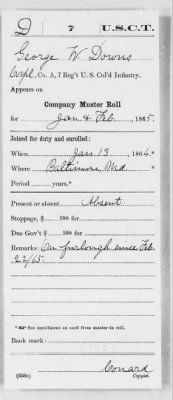 D | 7 | U.S.C.T.
George W. Downs
Corpl, Co. A, 7 Reg't U. S. Col'd Infantry.
Appears on
Company Muster Roll
for Jan & Feb, 1865.
Joined for duty and enrolled:
When Jan. 13, 1864.*
Where Baltimore, Md.
Period years.*
Present or absent Absent
Stoppage, $ 100 for
Due Gov't $ 100 for
Remarks: On furlough since Feb
22/65.
* See enrollment on card from muster-in roll.
Book mark:
Conard
(358c) Copyist.